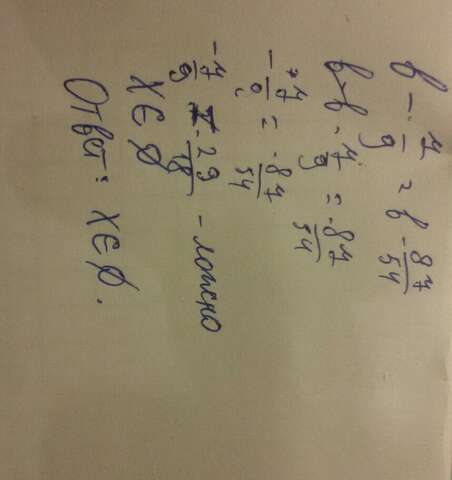 b - 7/9 = b - 87/54
b - b - 7/9 = -87/54
-7/9 = -87/54
-7/9 ≠ -29/18 - ложно
x ∈ ∅
Ответ: x ∈ ∅.